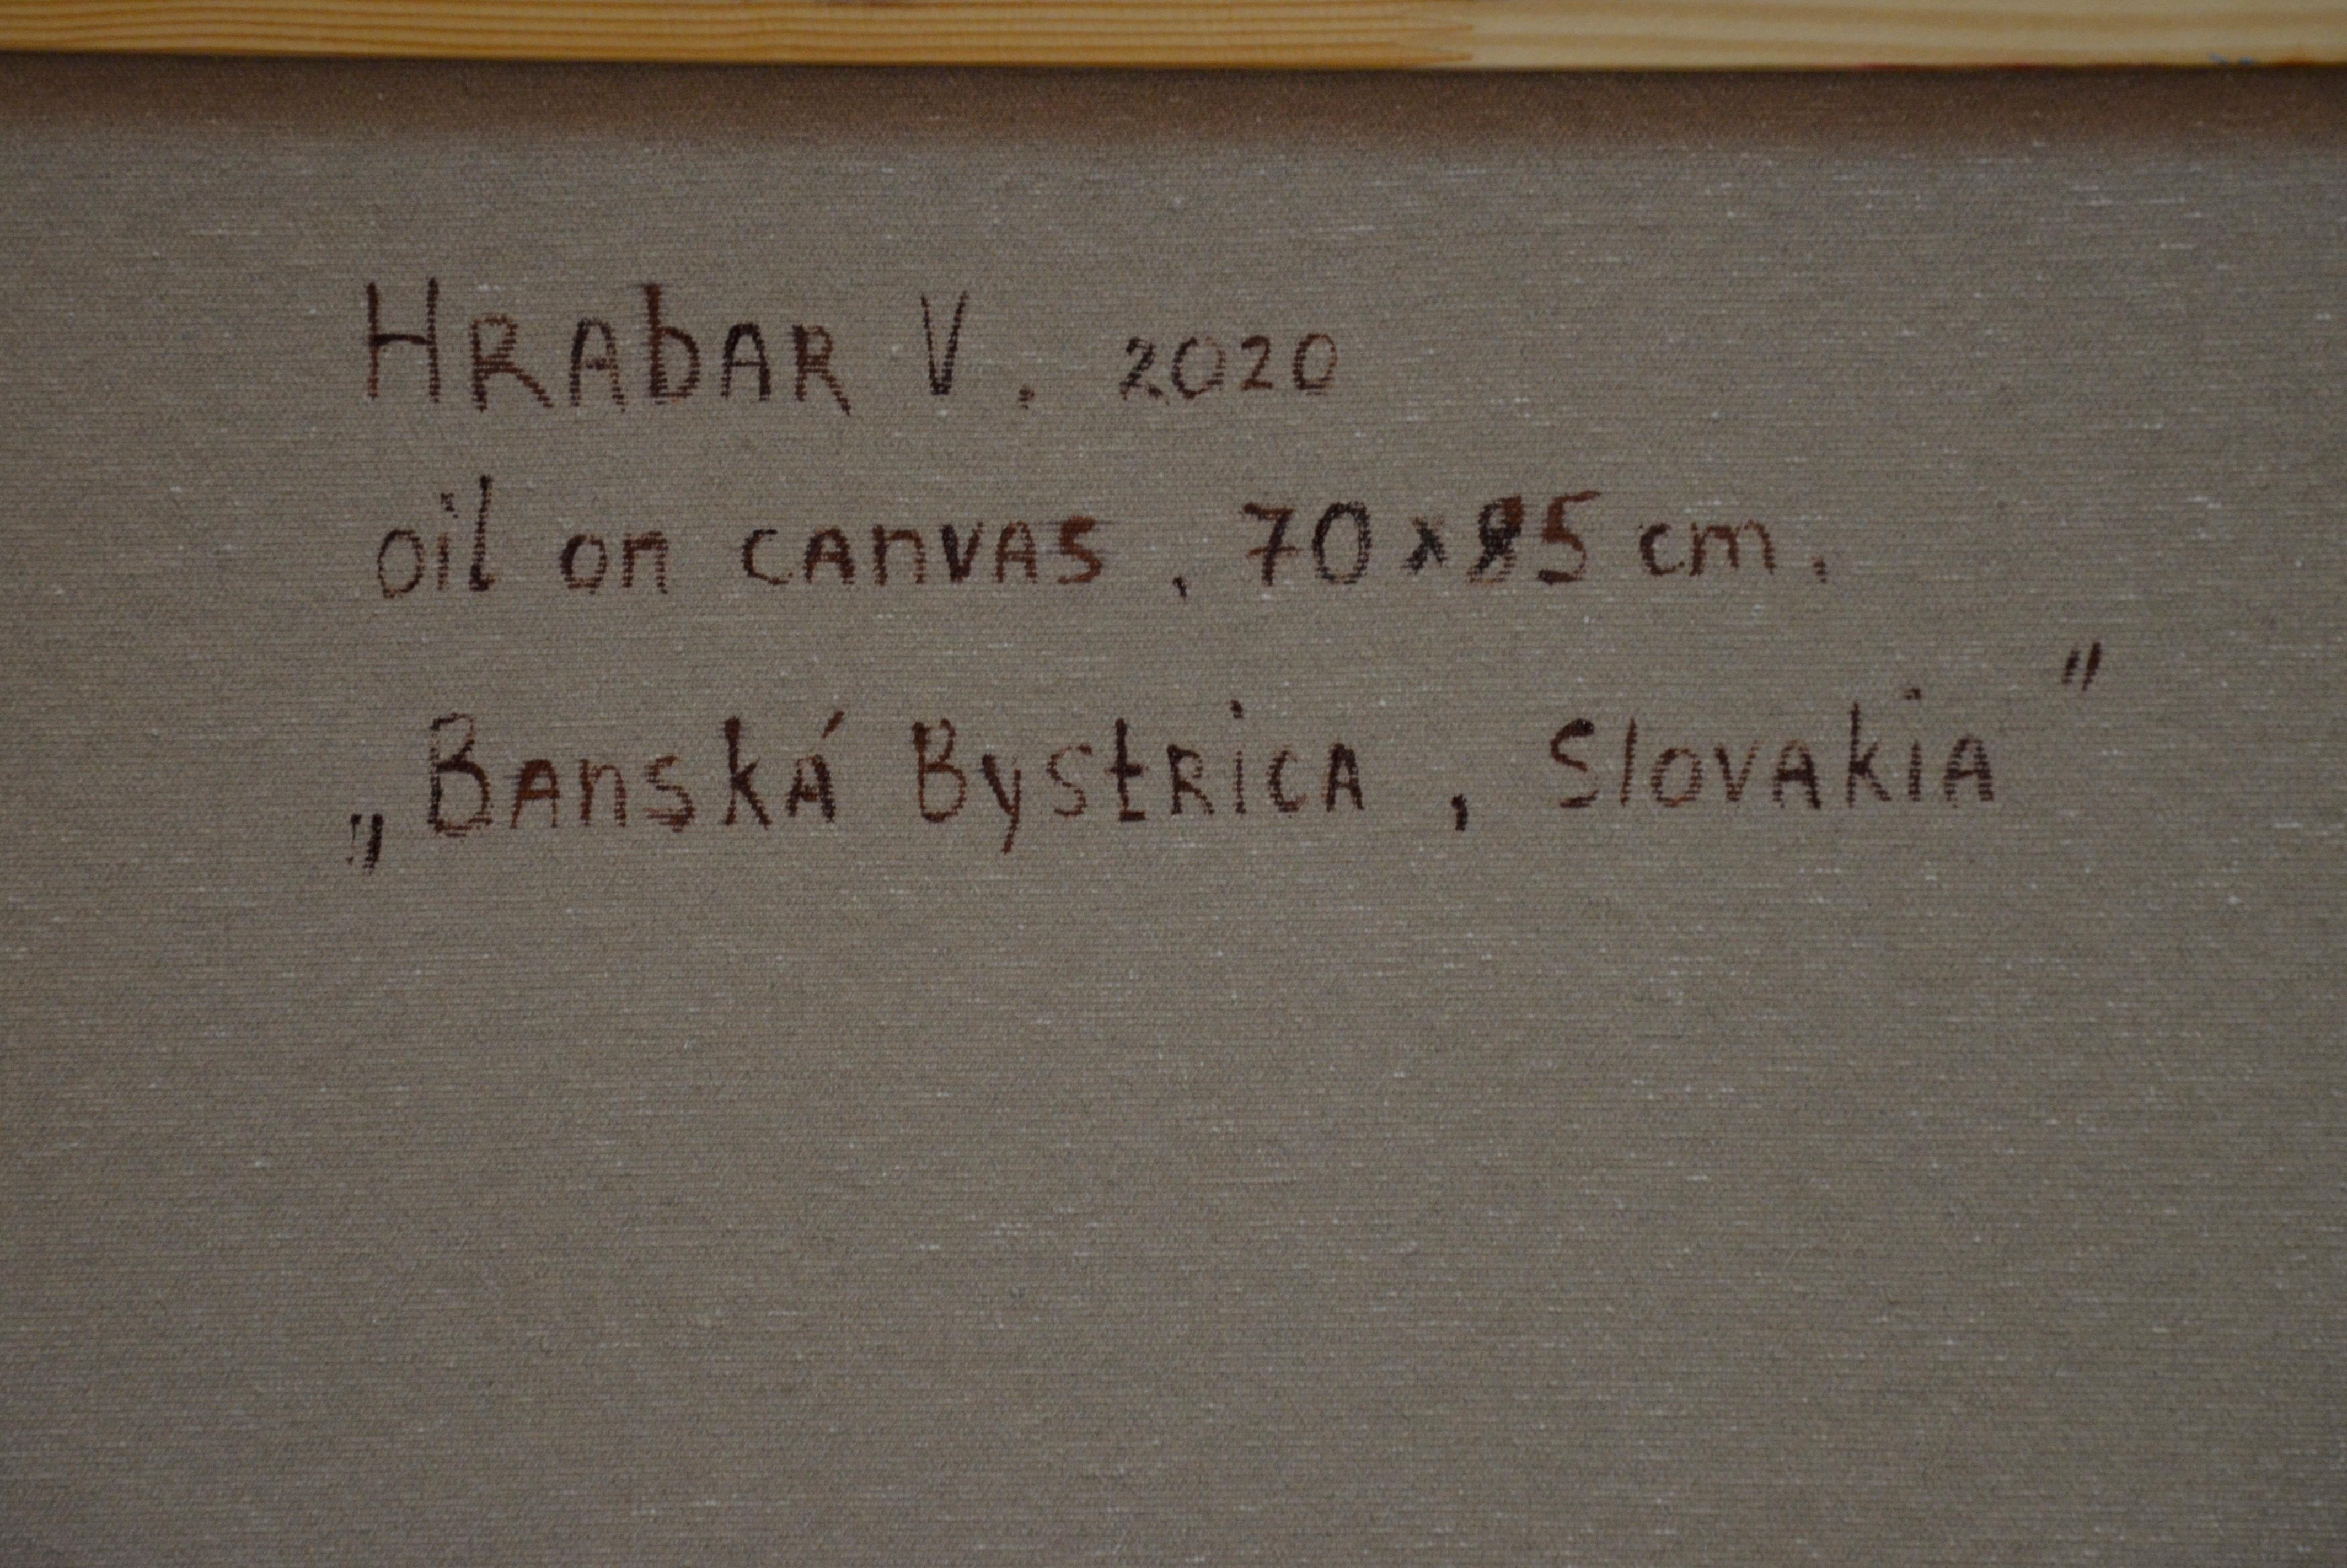 HRAbAR V. 2020
oil on canvas, cm.
„Banská Bystrica, Slovakia"